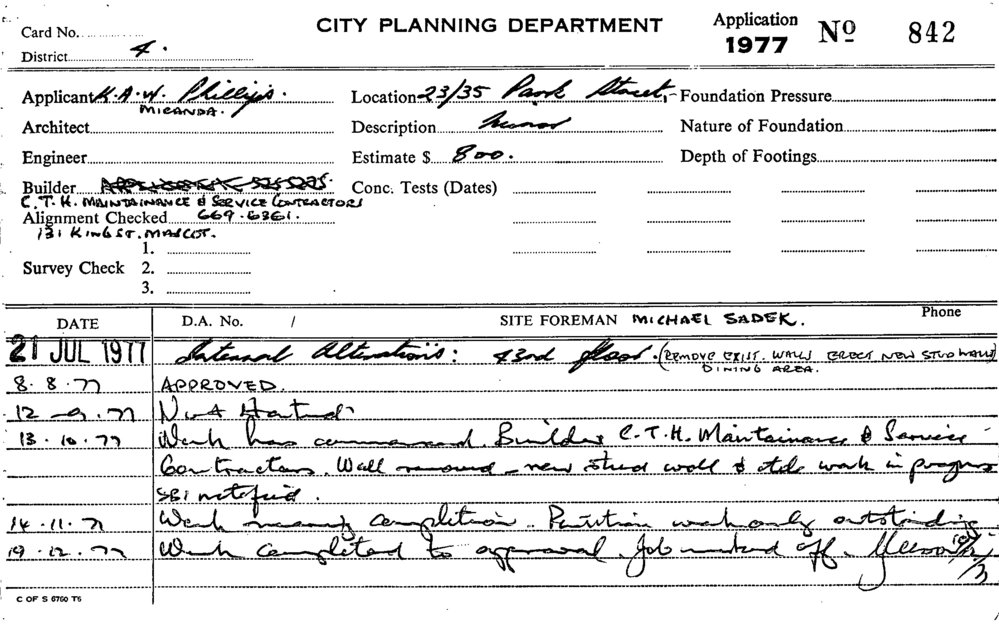 Card No.
CITY PLANNING DEPARTMENT
Application 1977 No 842
District 4.
Applicant K.A.W. Phillips. Location 23/35 Park Street, Foundation Pressure
MIRANDA.
Architect Description Minor Nature of Foundation
Engineer Estimate $ 800. Depth of Footings
Builder Conc. Tests (Dates)
C.T.H. MAINTAINANCE & SERVICE CONTRACTORS
Alignment Checked 669-6361.
131 KING ST. MASCOT.
1.
Survey Check 2.
3.
DATE D.A. No. / SITE FOREMAN MICHAEL SADEK. Phone
21 JUL 1977 Internal Alterations: 43nd floor. (REMOVE EXIST. WALLS ERECT NEW STUD WALLS)
DINING AREA.
8.8.77 APPROVED.
12-9.77 Not Started
13.10.77 Work has commenced. Builders C.T.H. Maintainance & Service
Contractors. Wall removed - new stud wall & work in progress
SBI notified.
14.11.77 Work nearing completion. Partition work only outstanding
19.12.77 Work completed to approval. Job marked off.
C OF S 6760 T5